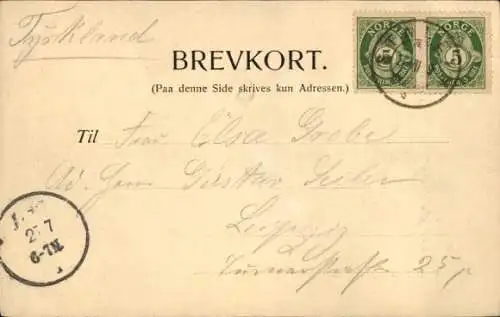 Tyskland
NORGE NORGE
5 5
BREVKORT.
(Paa denne Side skrives kun Adressen.)
Til Frau Elsa Grobe
Ad. Herrn Gustav
Leipzig
25
25 7
6-7N